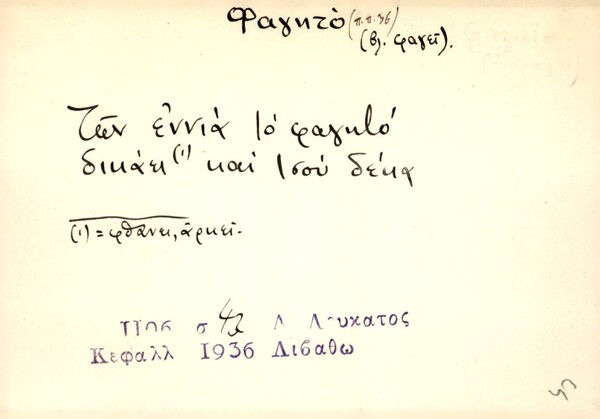 Φαγητὸ (π.π. 36)
(βλ. φαγεῖ).
Τῶν ἐννιὰ τὸ φαγητό
δικάει (1) καὶ τσοὺ δέκα
(1) = φθάνει, ἀρκεῖ.
1106 σ 42 Δ Λουκατος
Κεφαλλ 1936 Λιβαθω